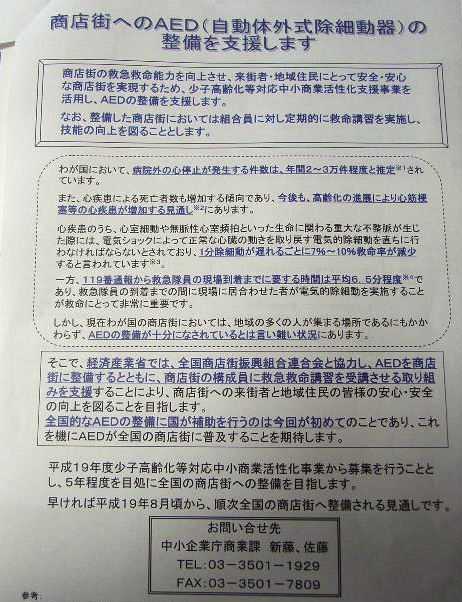 商店街へのAED(自動体外式除細動器)の
整備を支援します
商店街の救急救命能力を向上させ、来街者・地域住民にとって安全・安心
な商店街を実現するため、少子高齢化等対応中小商業活性化支援事業を
活用し、AEDの整備を支援します。
なお、整備した商店街においては組合員に対し定期的に救命講習を実施し、
技能の向上を図ることとします。
わが国において、病院外の心停止が発生する件数は、年間2~3万件程度と推定※1され
ています。
また、心疾患による死亡者数も増加する傾向であり、今後も、高齢化の進展により心筋梗
塞等の心疾患が増加する見通し※2にあります。
心疾患のうち、心室細動や無脈性心室頻拍といった生命に関わる重大な不整脈が生じ
た際には、電気ショックによって正常な心臓の動きを取り戻す電気的除細動を直ちに行
わなければならないとされており、1分除細動が遅れるごとに7%~10%救命率が減少
すると言われています※3。
一方、119番通報から救急隊員の現場到着までに要する時間は平均6.5分程度※4で
あり、救急隊員の到着までの間に現場に居合わせた者が電気的除細動を実施すること
が救命にとって非常に重要です。
しかし、現在わが国の商店街においては、地域の多くの人が集まる場所であるにもかか
わらず、AEDの整備が十分になされているとは言い難い状況にあります。
そこで、経済産業省では、全国商店街振興組合連合会と協力し、AEDを商店
街に整備するとともに、商店街の構成員に救急救命講習を受講させる取り組
みを支援することにより、商店街への来街者と地域住民の皆様の安心・安全
の向上を図ることを目指します。
全国的なAEDの整備に国が補助を行うのは今回が初めてのことであり、これ
を機にAEDが全国の商店街に普及することを期待します。
平成19年度少子高齢化等対応中小商業活性化事業から募集を行うことと
し、5年程度を目処に全国の商店街への整備を目指します。
早ければ平成19年8月頃から、順次全国の商店街へ整備される見通しです。
お問い合せ先
中小企業庁商業課 新藤、佐藤
TEL:03-3501-1929
FAX:03-3501-7809
参考: